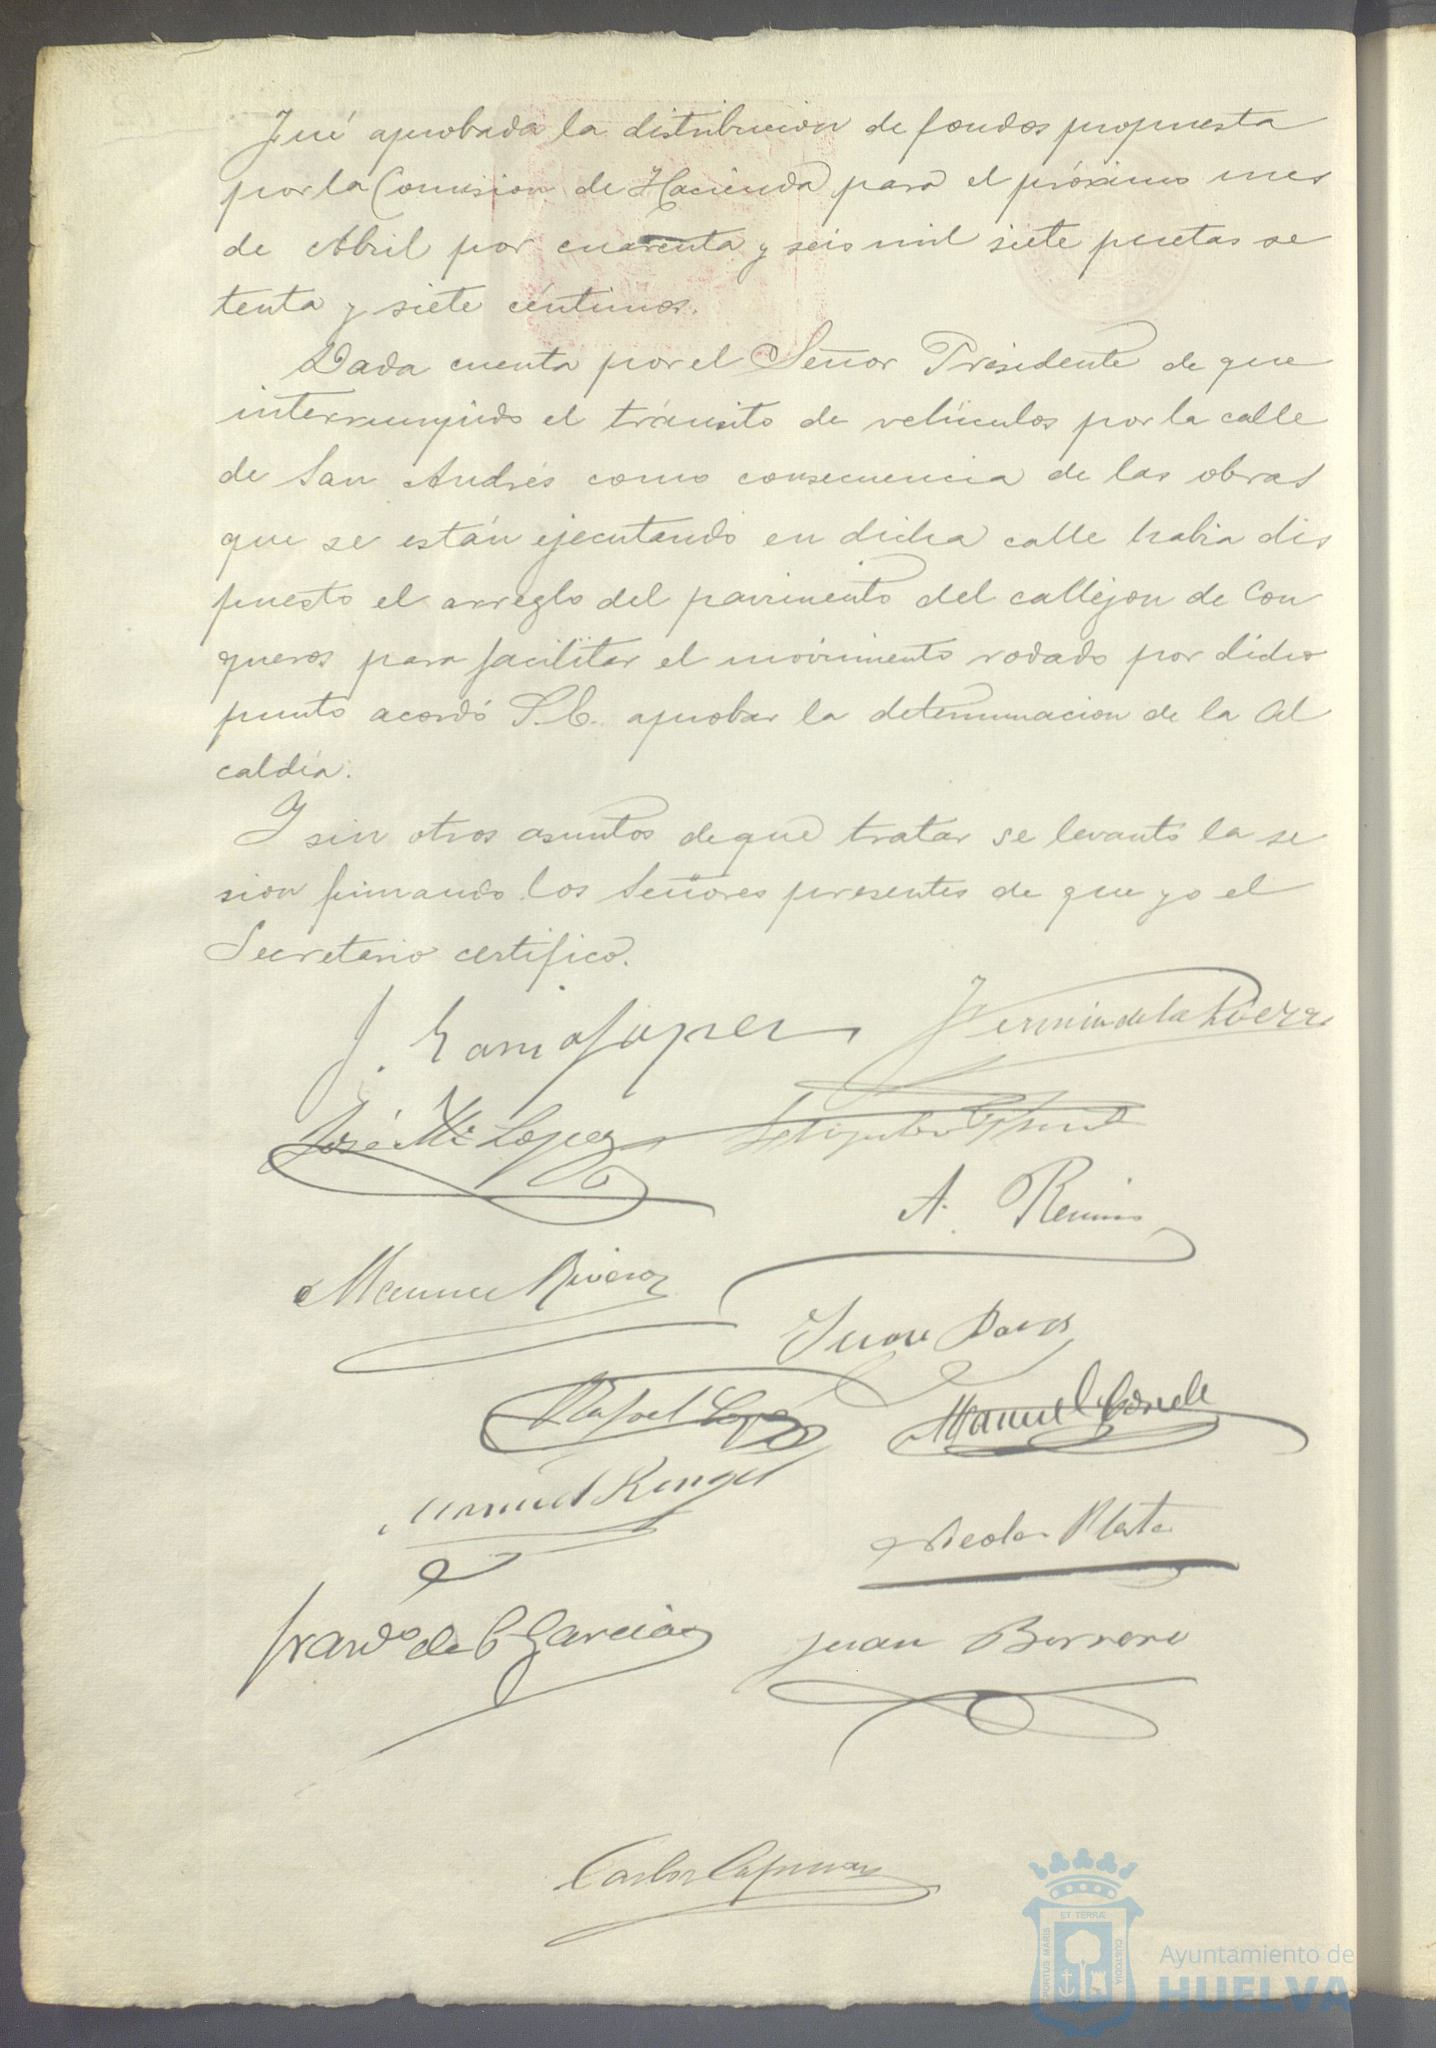 Fué aprobada la distribucion de fondos propuesta
por la Comision de Hacienda para el próximo mes
de Abril por cuarenta y seis mil siete pesetas se
tenta y siete céntimos.
Dada cuenta por el Señor Presidente de que
interrumpido el tránsito de vehículos por la calle
de San Andrés como consecuencia de las obras
que se están ejecutando en dicha calle habia dis
puesto el arreglo del pavimento del callejon de Con
queros para facilitar el movimiento rodado por dicho
punto acordó S.E. aprobar la determinacion de la Al
caldía.
Y sin otros asuntos de que tratar se levantó la se
sion firmando los Señores presentes de que yo el
Secretario certifico.
J. Garcia Lopez
Fermin de la
José Mª Lopez
A.
Manuel Rivera
Juan
Rafael Lopez
Manuel
Manuel Rengel
Nicolas Plata
Franco de P Garcia
Juan Borrero
Carlos
PORTUS MARIS
ET TERRÆ
CUSTODIA
Ayuntamiento de
HUELVA